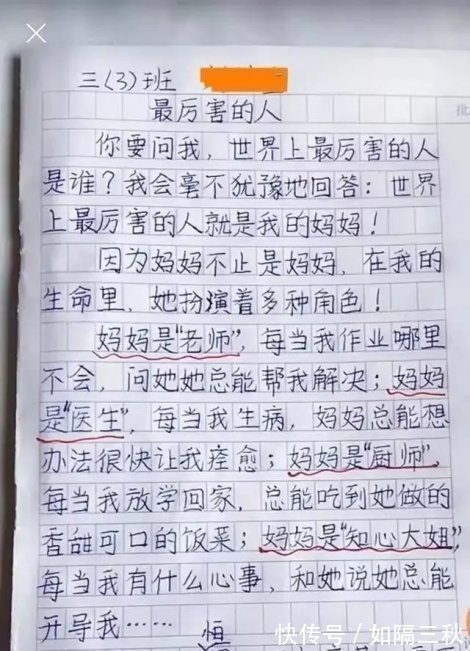 三(3)班
最厉害的人
你要问我，世界上最厉害的人
是谁？我会毫不犹豫地回答：世界
上最厉害的人就是我的妈妈！
因为妈妈不止是妈妈，在我的
生命里，她扮演着多种角色！
妈妈是“老师”，每当我作业哪里
不会，问她她总能帮我解决；妈妈
是“医生”，每当我生病，妈妈总能想
办法很快让我痊愈；妈妈是“厨师”，
每当我放学回家，总能吃到她做的
香甜可口的饭菜；妈妈是“知心大姐”，
每当我有什么心事，和她说她总能
开导我……
恒
快传号／如隔三秋